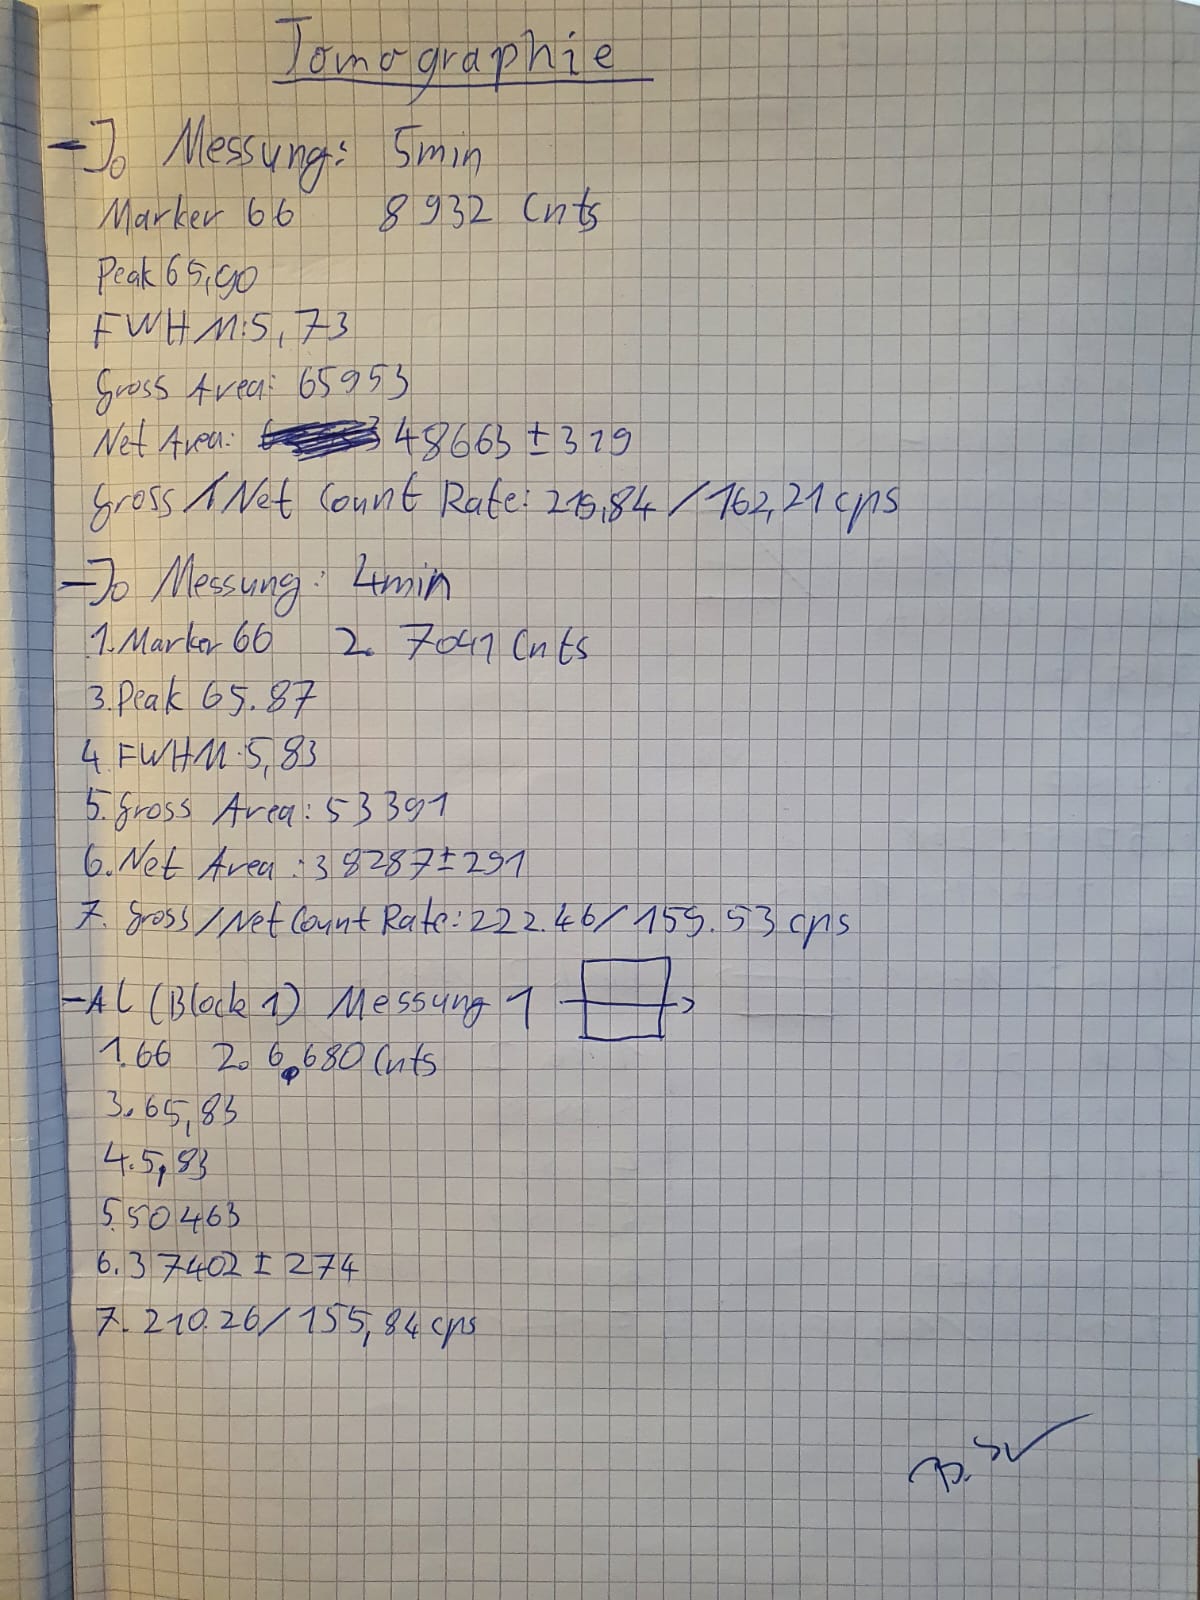 Tomographie
- I₀ Messung: 5min
Marker 66 8932 Cnts
Peak 65,90
FWHM:5,73
Gross Area: 65953
Net Area: 48663 ± 319
Gross / Net Count Rate: 219,84 / 162,21 cps
- I₀ Messung: 4min
1. Marker 66 2. 7041 Cnts
3. Peak 65.87
4 FWHM:5,83
5. Gross Area: 53391
6. Net Area: 38287 ± 291
7. Gross / Net Count Rate: 222.46 / 159.53 cps
- AL (Block 1) Messung 1
1. 66 2. 6.680 Cnts
3. 65,83
4. 5,83
5. 50463
6. 37402 ± 274
7. 210.26 / 155,84 cps